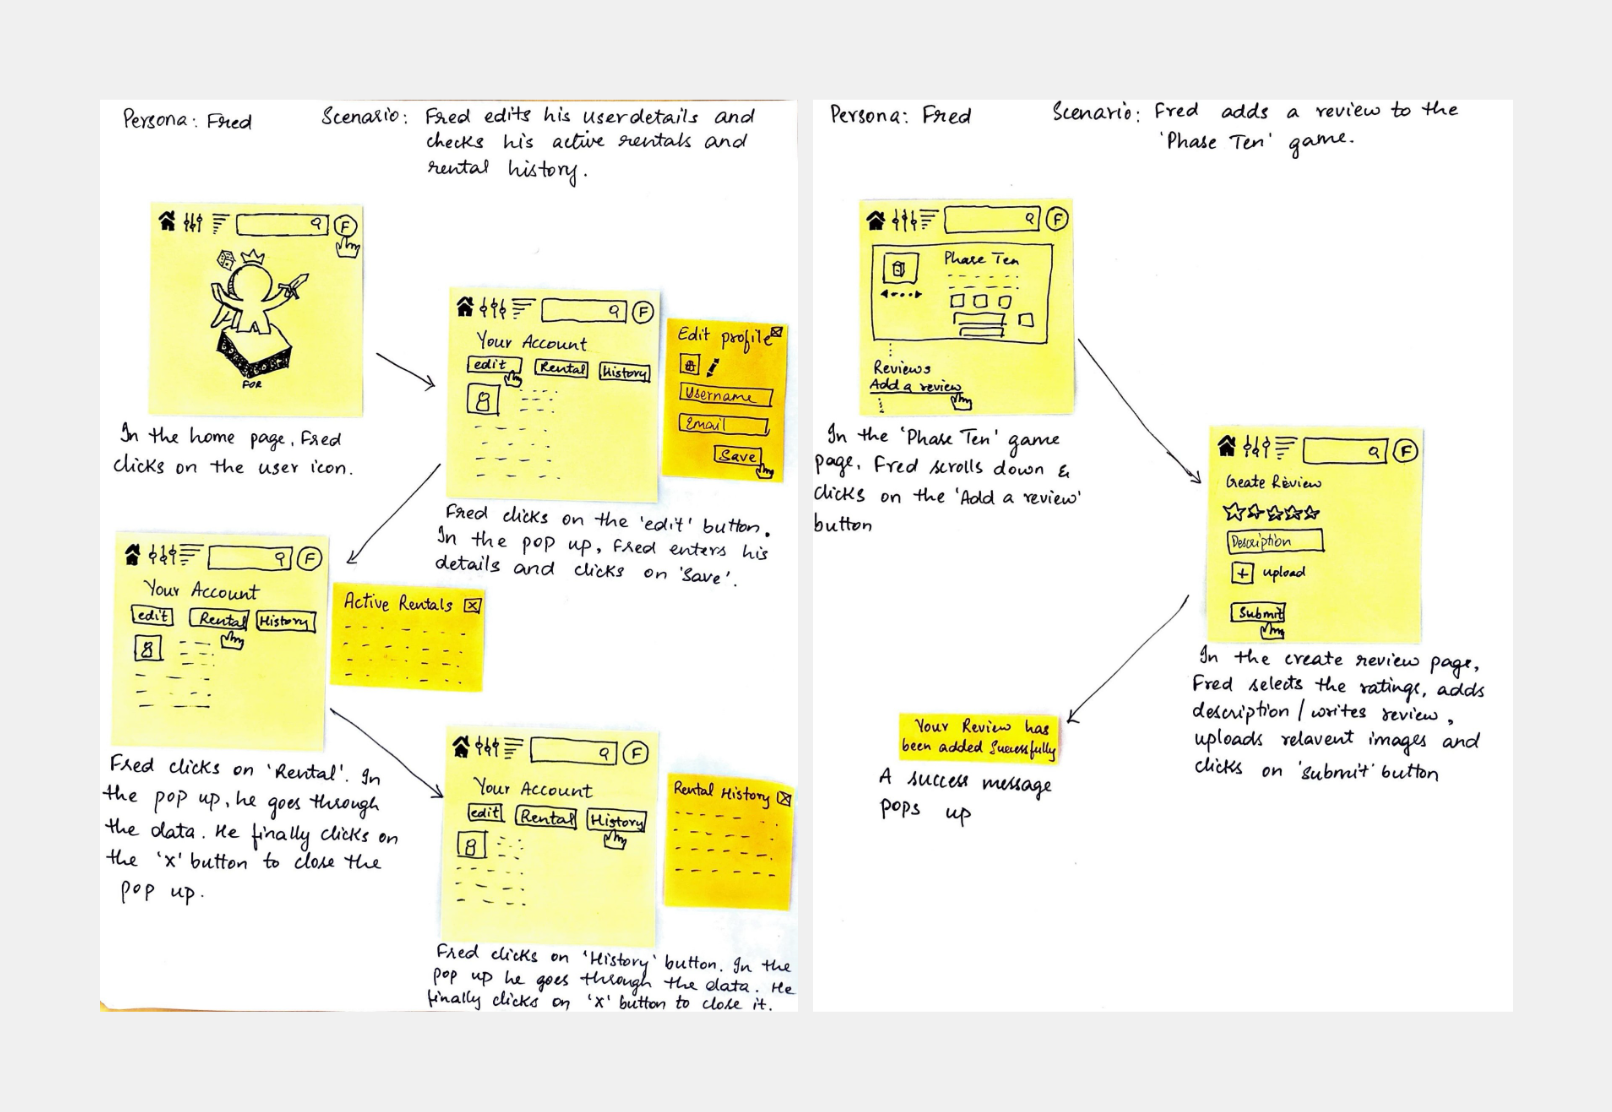 Persona: Fred
Scenario: Fred edits his userdetails and
checks his active rentals and
rental history.
F
FOR
In the home page, Fred
clicks on the user icon.
F
Your Account
edit Rental History
Edit profile
Username
Email
Save
Fred clicks on the 'edit' button.
In the pop up, Fred enters his
details and clicks on 'Save'.
F
Your Account
edit Rental History
Active Rentals
Fred clicks on 'Rental'. In
the pop up, he goes through
the data. He finally clicks on
the 'x' button to close the
pop up.
F
Your Account
edit Rental History
Rental History
Fred clicks on 'History' button. In the
pop up he goes through the data. He
finally clicks on 'x' button to close it.
Persona: Fred
Scenario: Fred adds a review to the
'Phase Ten' game.
F
Phase Ten
Reviews
Add a review
In the 'Phase Ten' game
page, Fred scrolls down &
clicks on the 'Add a review'
button
F
Create Review
Description
+ upload
Submit
In the create review page,
Fred selects the ratings, adds
description / writes review,
uploads relavent images and
clicks on 'submit' button
Your Review has
been added Successfully
A success message
pops up